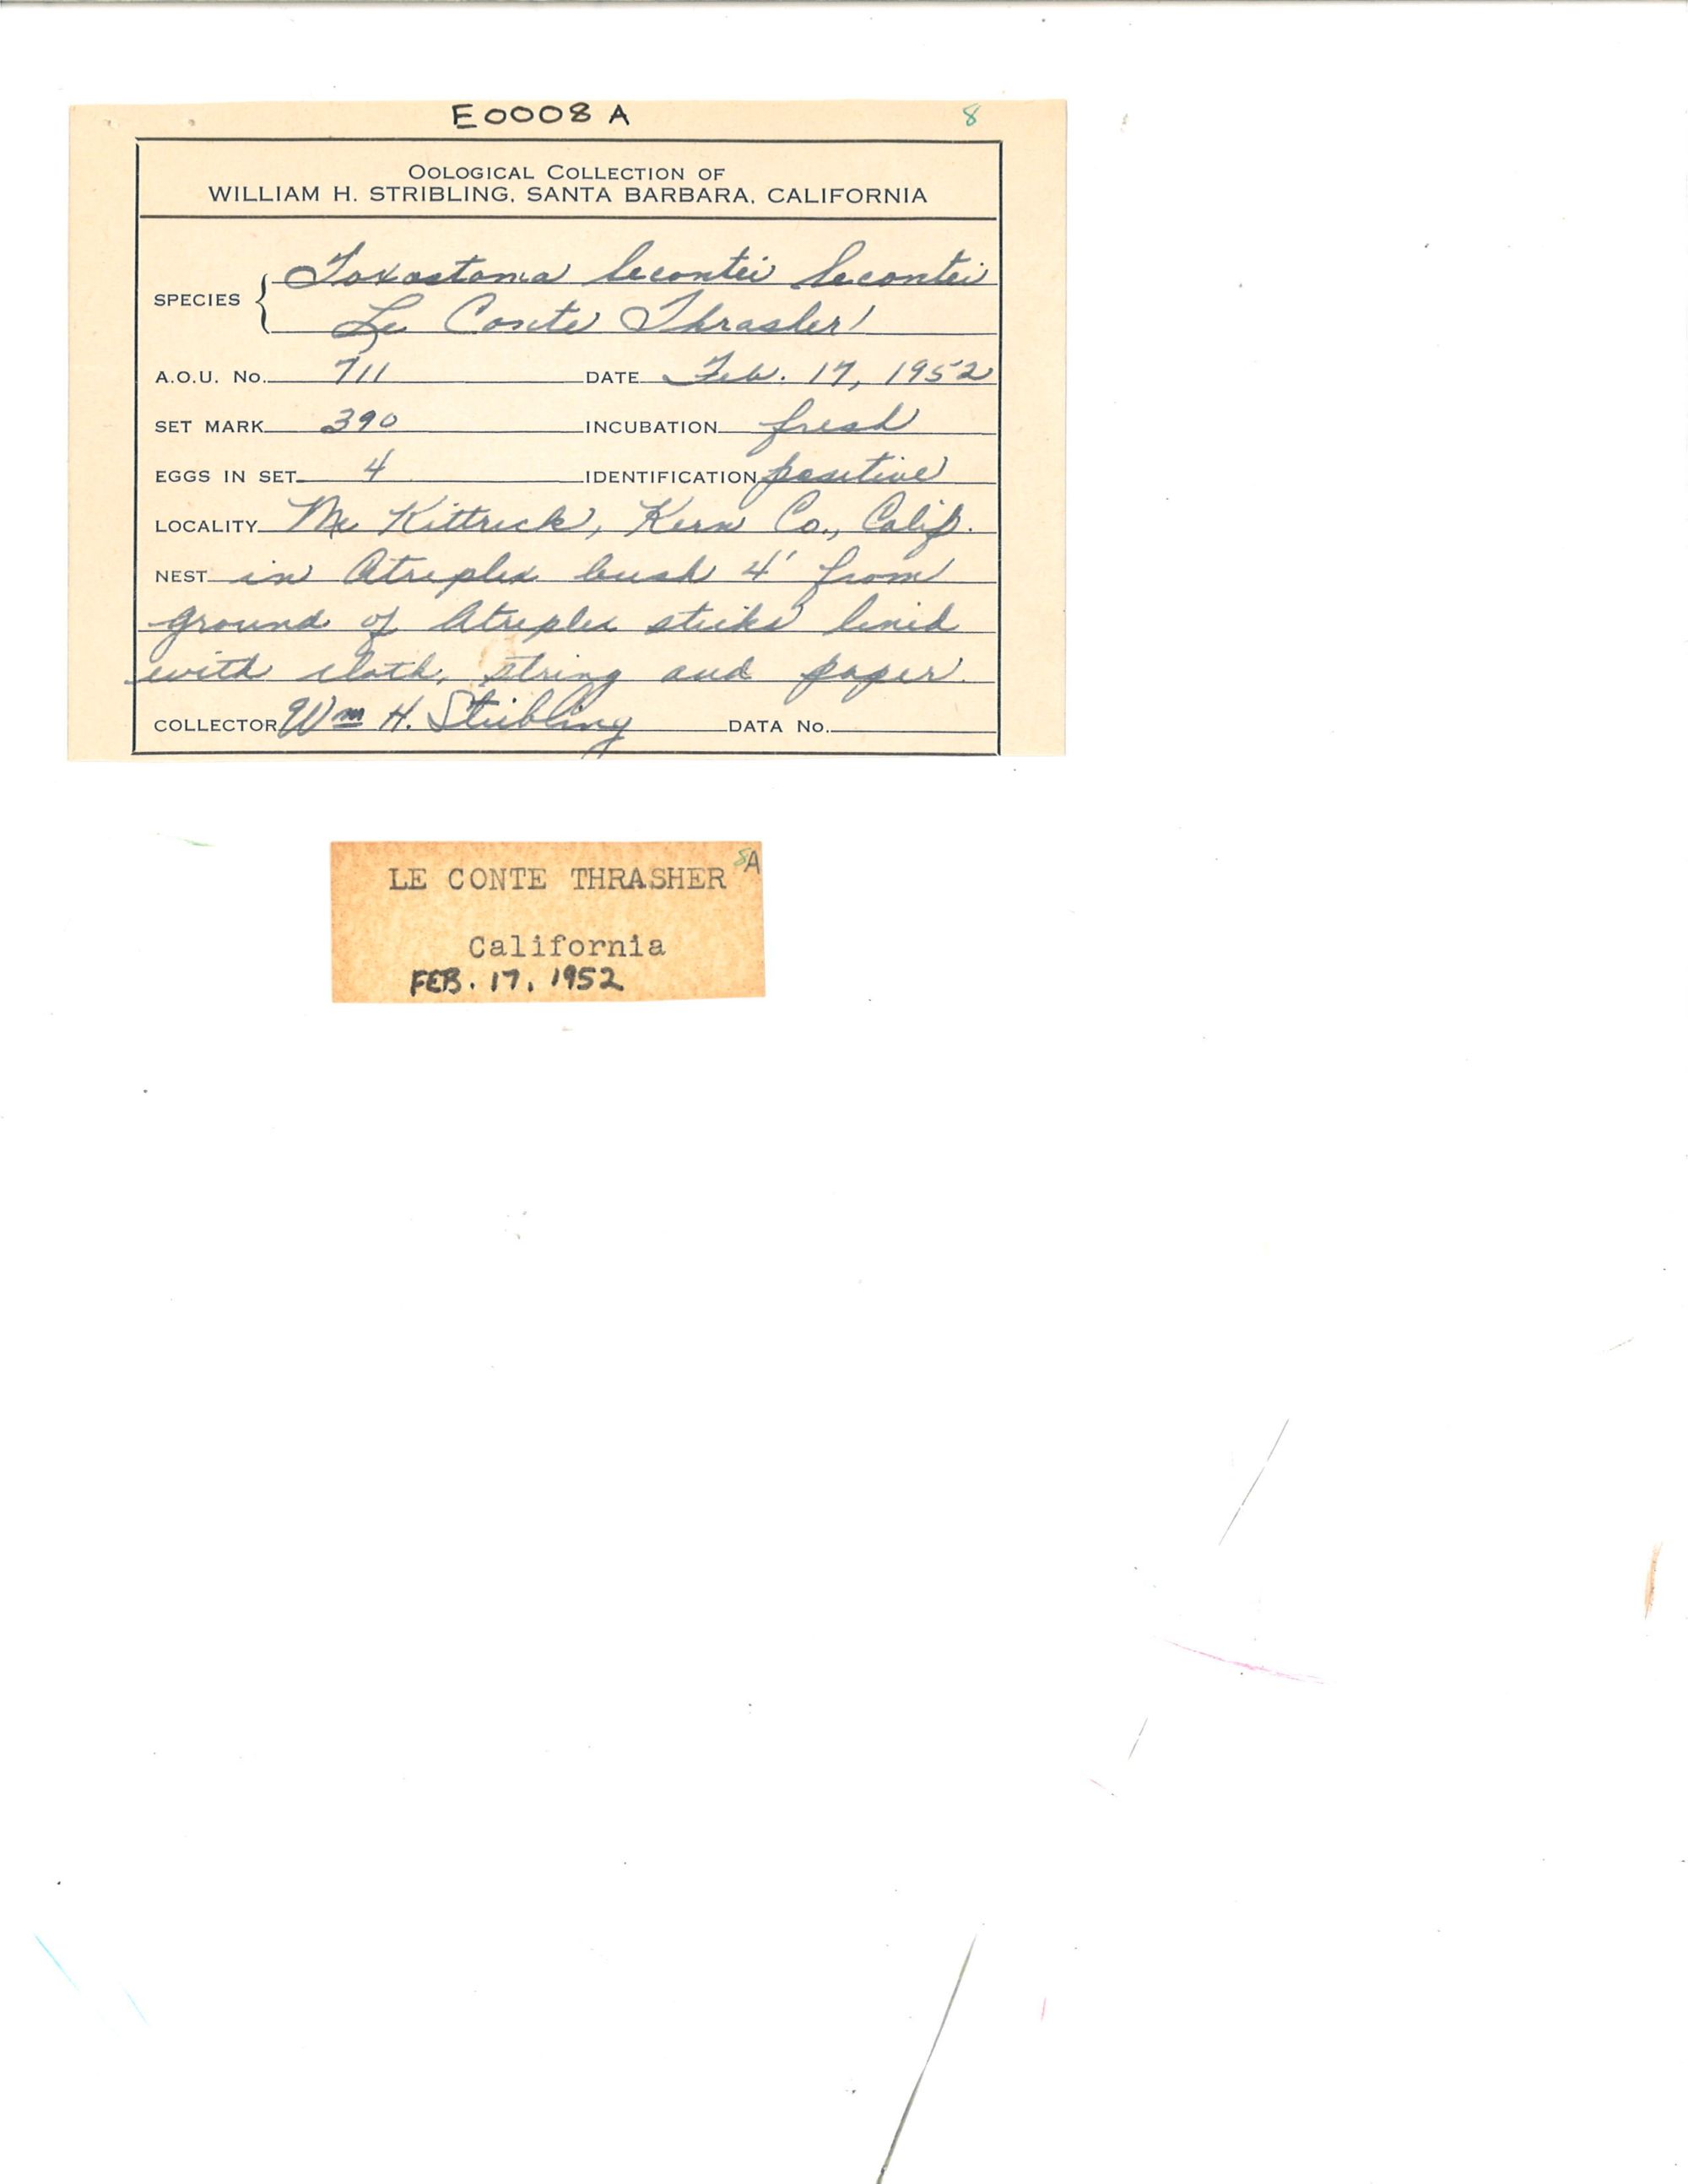 E0008 A
8
OOLOGICAL COLLECTION OF
WILLIAM H. STRIBLING, SANTA BARBARA, CALIFORNIA
SPECIES { Toxostoma lecontei lecontei
Le Conte Thrasher
A.O.U. No. 711 DATE Feb. 17, 1952
SET MARK 390 INCUBATION fresh
EGGS IN SET 4 IDENTIFICATION positive
LOCALITY Mc Kittrick, Kern Co., Calif.
NEST in Atriplex bush 4' from
ground of Atriplex sticks lined
with cloth, string and paper.
COLLECTOR Wm H. Stribling DATA No.
8A
LE CONTE THRASHER
California
FEB. 17, 1952